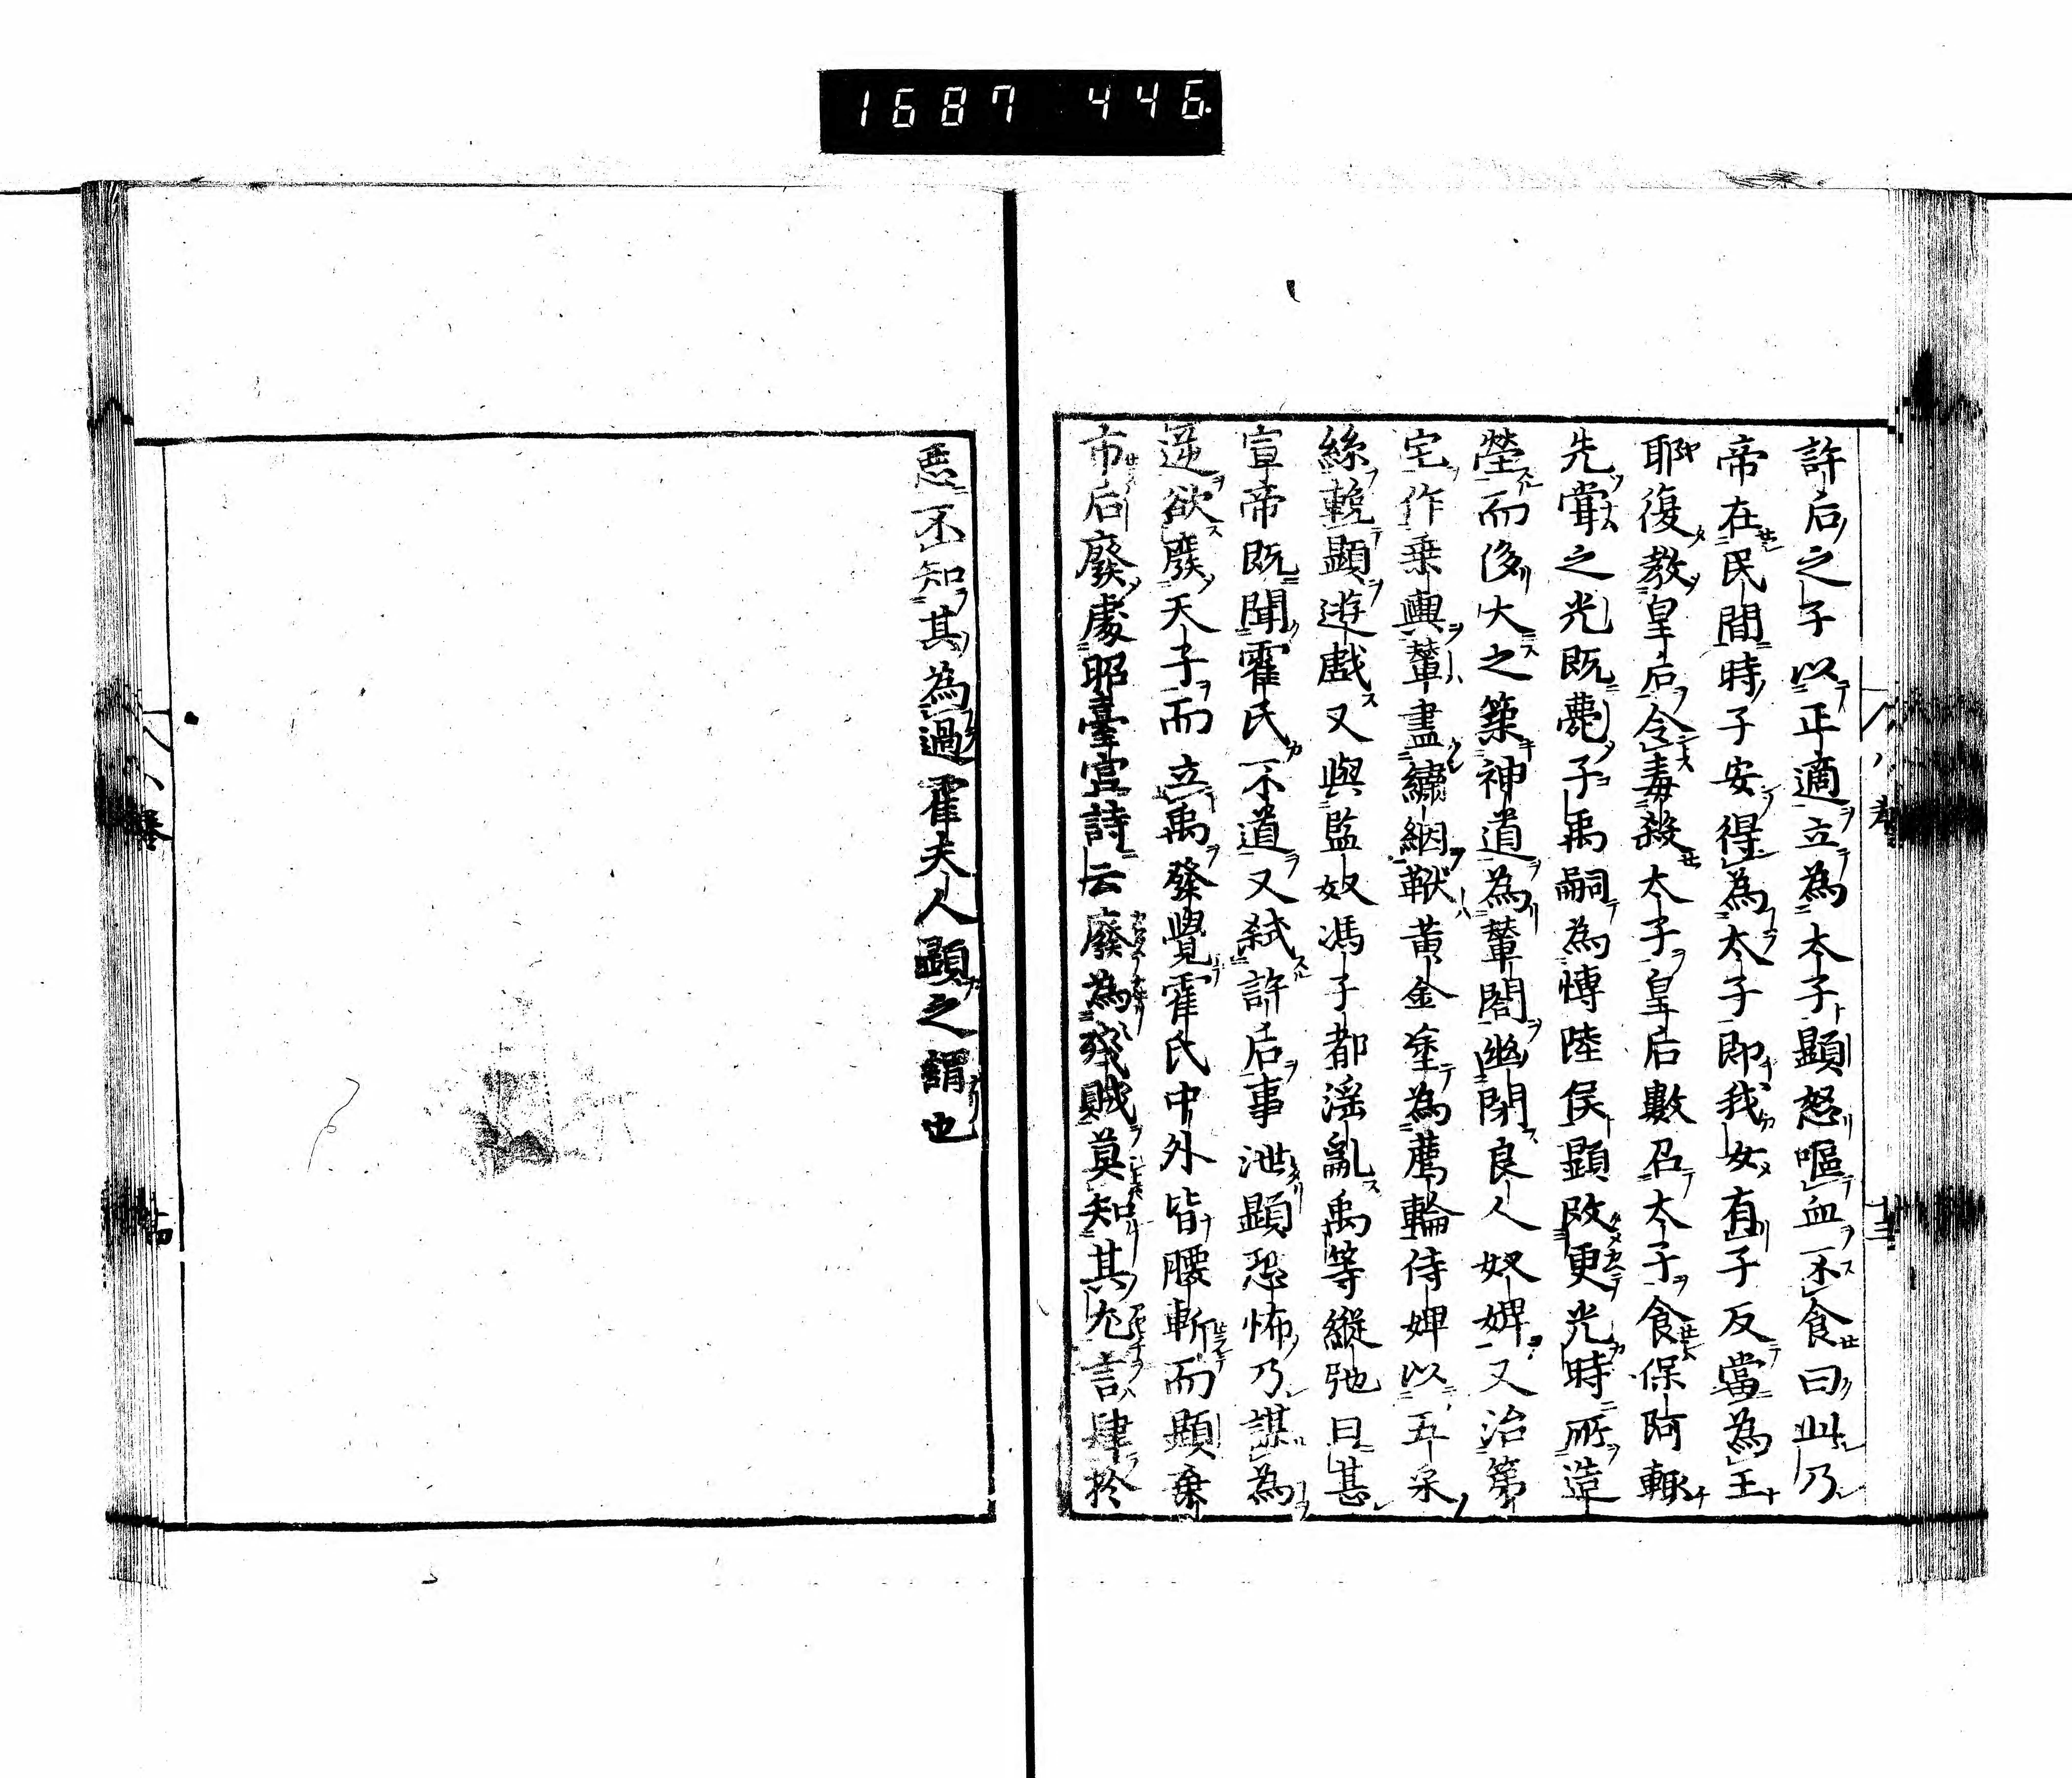 1687 446
許后之子以正適立為太子顯怒嘔血不食曰此乃
帝在民間時子安得為太子即我女有子反當為王
耶復教皇后令毒殺太子皇后數召太子食保阿輒
先嘗之光既薨子禹嗣為博陸侯顯改更光時所造
塋而侈大之築神道為輦閣幽閉良人奴婢又治第
宅作乗輿輦畫繡絪靯黃金塗為薦輪侍婢以五采
絲輓顯遊戲又與監奴馮子都淫亂禹等縱弛日甚
宣帝既聞霍氏不道又弑許后事泄顯恐怖乃謀為
逆欲廢天子而立禹發覺霍氏中外皆腰斬而顯棄
市后廢處昭臺宮詩云廢為殘賊莫知其尤言肆於
惡不知其為過霍夫人顯之謂也